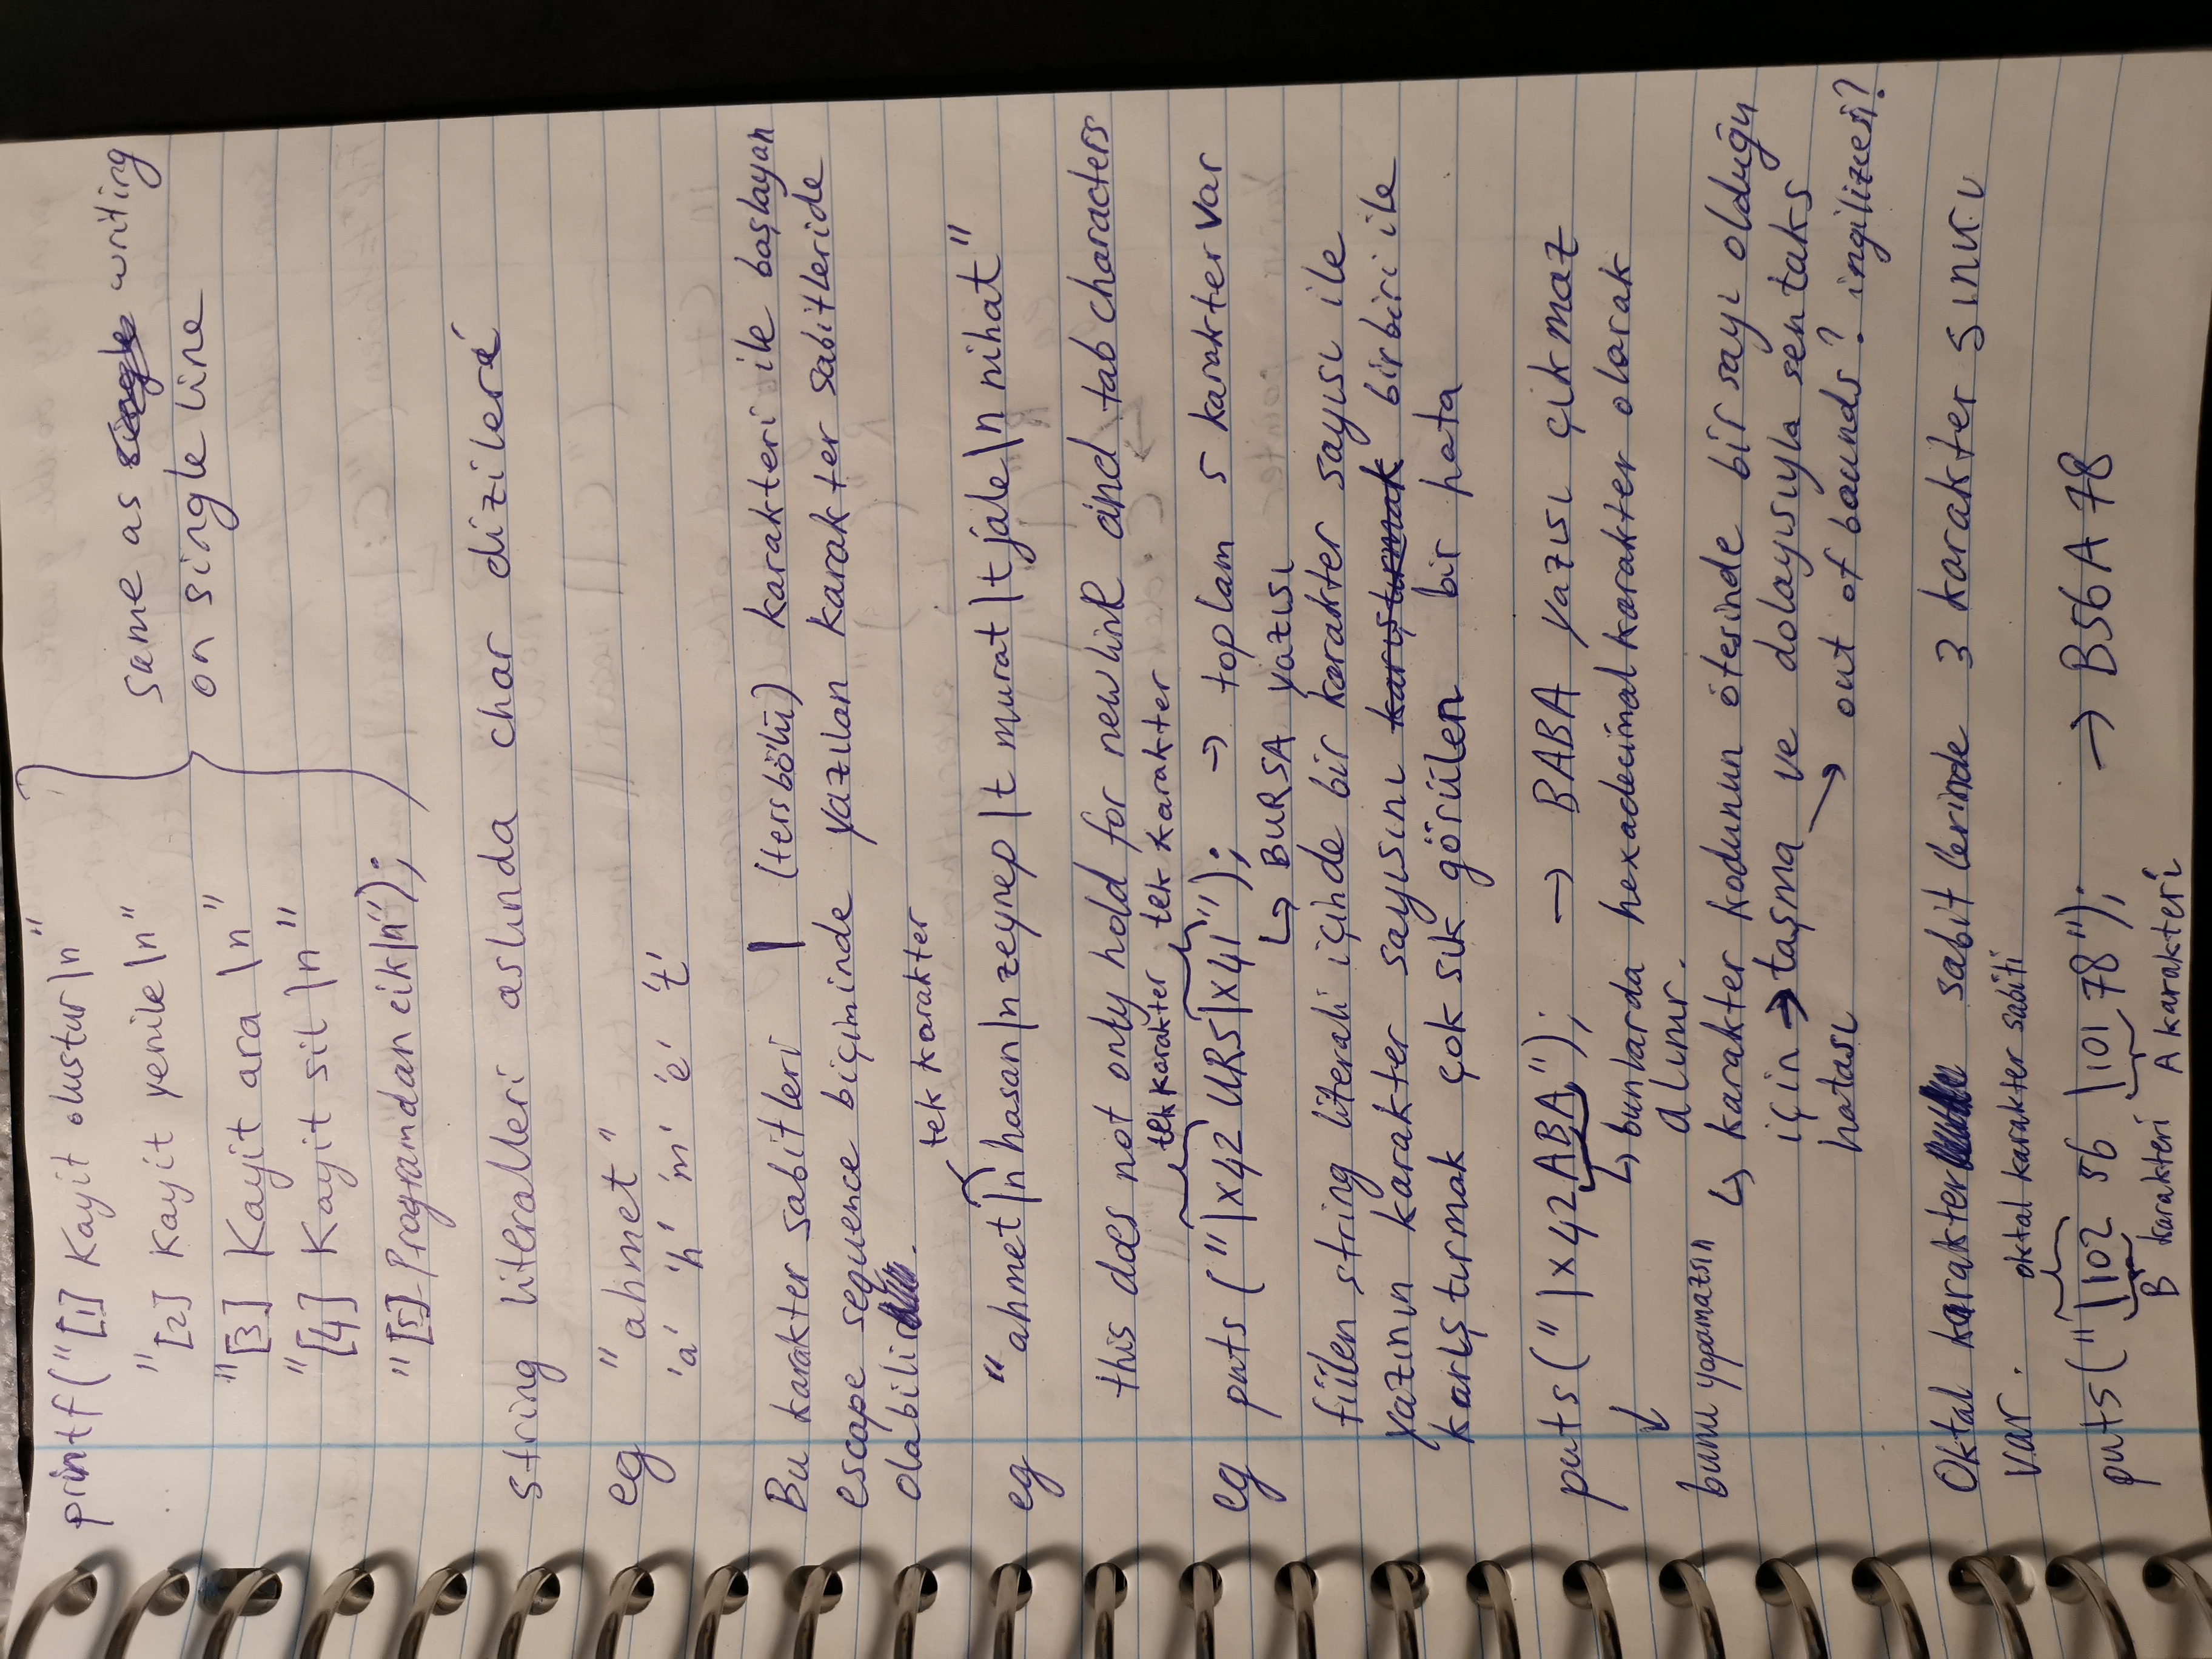 printf("[1] Kayit olustur\n"
"[2] Kayit yenile\n"
"[3] Kayit ara \n"
"[4] Kayit sil \n"
"[5] Programdan cik\n");
same as writing
on single line
string literalleri aslında char dizileri
eg "ahmet"
'a' 'h' 'm' 'e' 't'
Bu karakter sabitleri \ (tersbölü) karakteri ile başlayan
escape sequence biçiminde yazılan karakter sabitleride
olabilir.
tek karakter
eg "ahmet\n hasan\n zeynep \t murat \t jale\n nihat"
this does not only hold for newline and tab characters
tek karakter, tek karakter
eg puts ("\x42 URS\x41"); → toplam 5 karakter var
↳ BURSA yazısı
fiilen string literali içinde bir karakter sayısı ile
yazının karakter sayısını karıştırmak birbiri ile
karıştırmak çok sık görülen bir hata
puts("\x42ABA"); → BABA yazısı çıkmaz
↳ bunlarda hexadecimal karakter olarak
alınır.
bunu yapamazsın
↳ karakter kodunun ötesinde bir sayı olduğu
için → taşma ve dolayısıyla sentaks
hatası → out of baunds? ingilizcesi?
Oktal karakter sabitlerinde 3 karakter sınırı
var.
oktal karakter sabiti
puts("\102 56 \101 78"); → B56A78
B karakteri A karakteri